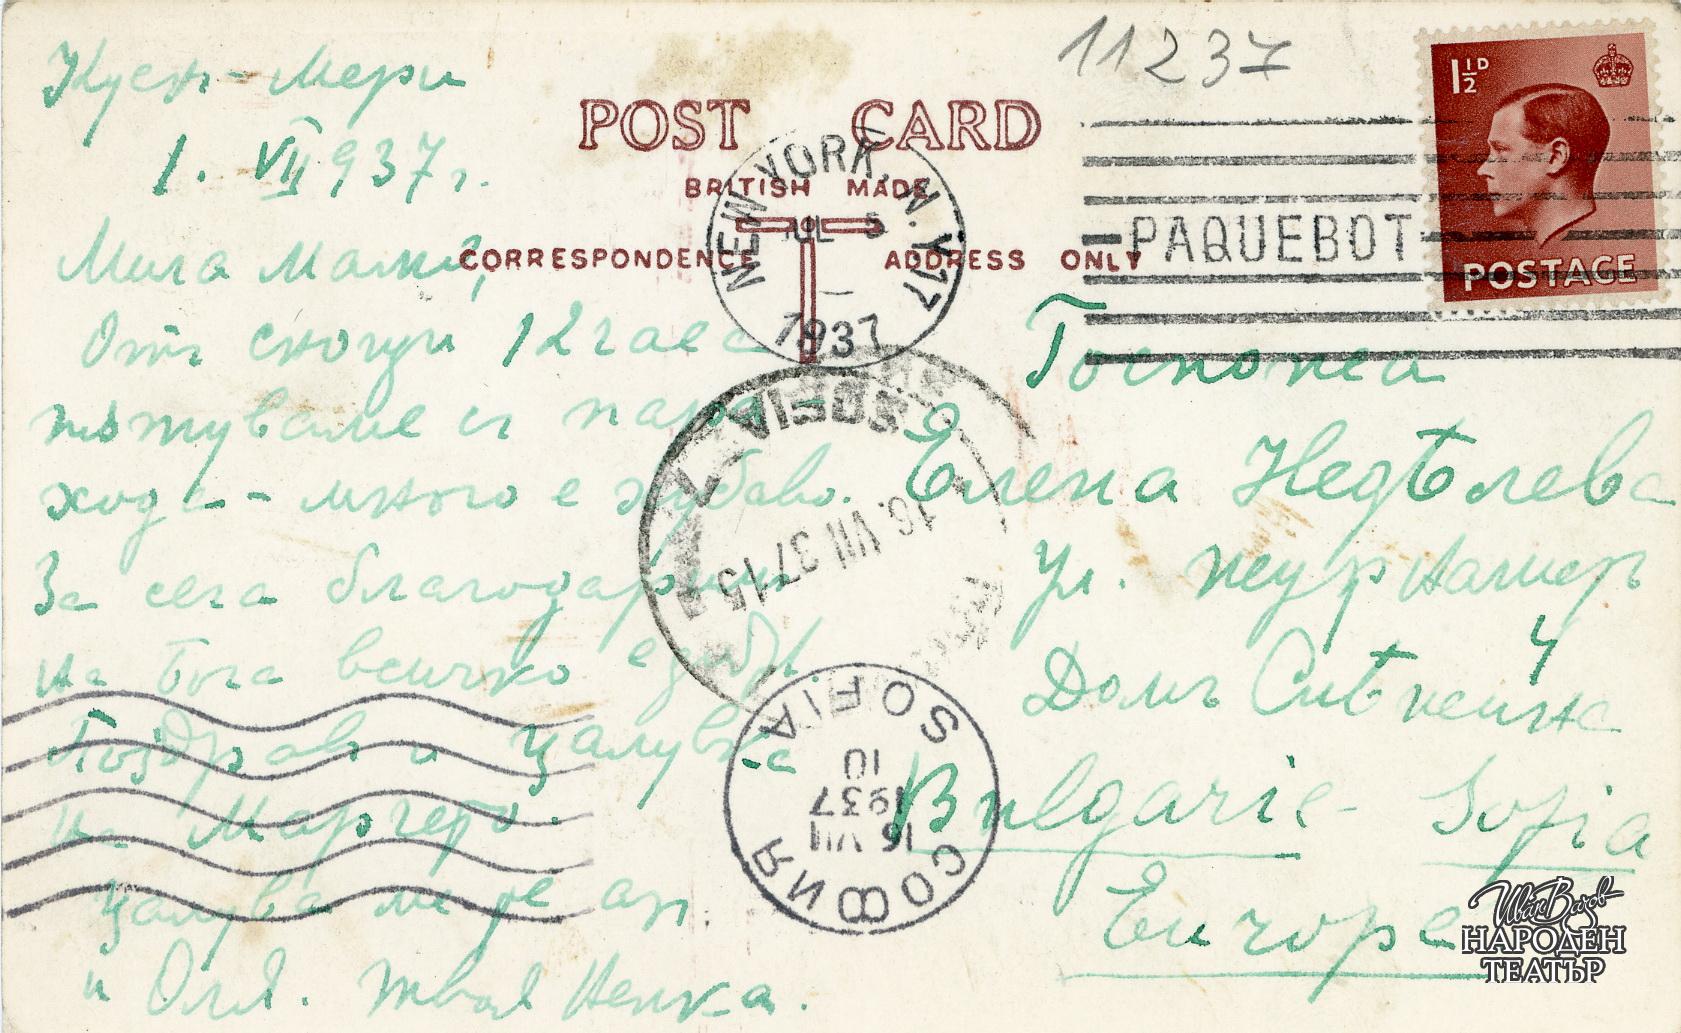 Куен-Мери
1. VII 937 г.
Мила Мамо,
От снощи 12 часа
пътуваме с пара-
хода - много е хубаво.
За сега благодарим
на Бога всичко е добр.
Поздрав и целувка
на Маргето.
Целуваме те аз
и Оля. твоя Ненка.
11237
POST CARD
BRITISH MADE
CORRESPONDENCE
ADDRESS ONLY
NEW YORK, N.Y. 17
JUL 5
1937
PAQUEBOT
1½D
POSTAGE
SOFIA
16. VII 37 15
SOFIA
10
1937
16 VII
СОФИЯ
Госпожа
Елена Недѣлева
Ул. Неур
4
Домъ
Bulgarie - Sofia
Europe
Иван Вазов
НАРОДЕН
ТЕАТЪР